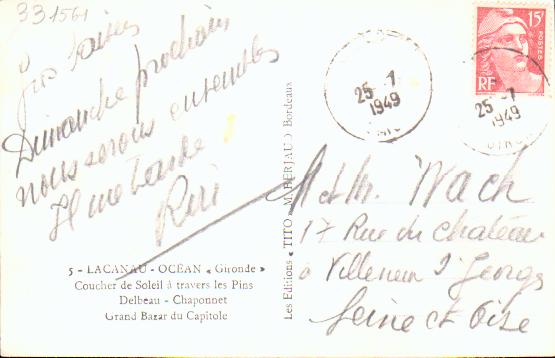 331561
Gros baisers
Dimanche prochain
nous serons ensembles
Il me tarde
Riri
5 - LACANAU - OCÉAN « Gironde »
Coucher de Soleil à travers les Pins
Delbeau - Chaponnet
Grand Bazar du Capitole
Les Editions « TITO » Bordeaux
15F
POSTES
RF
25 - 7
1949
25 - 7
1949
M et Mr. Wach
17 Rue du chateau
à Villeneuve St Georges
Seine et Oise